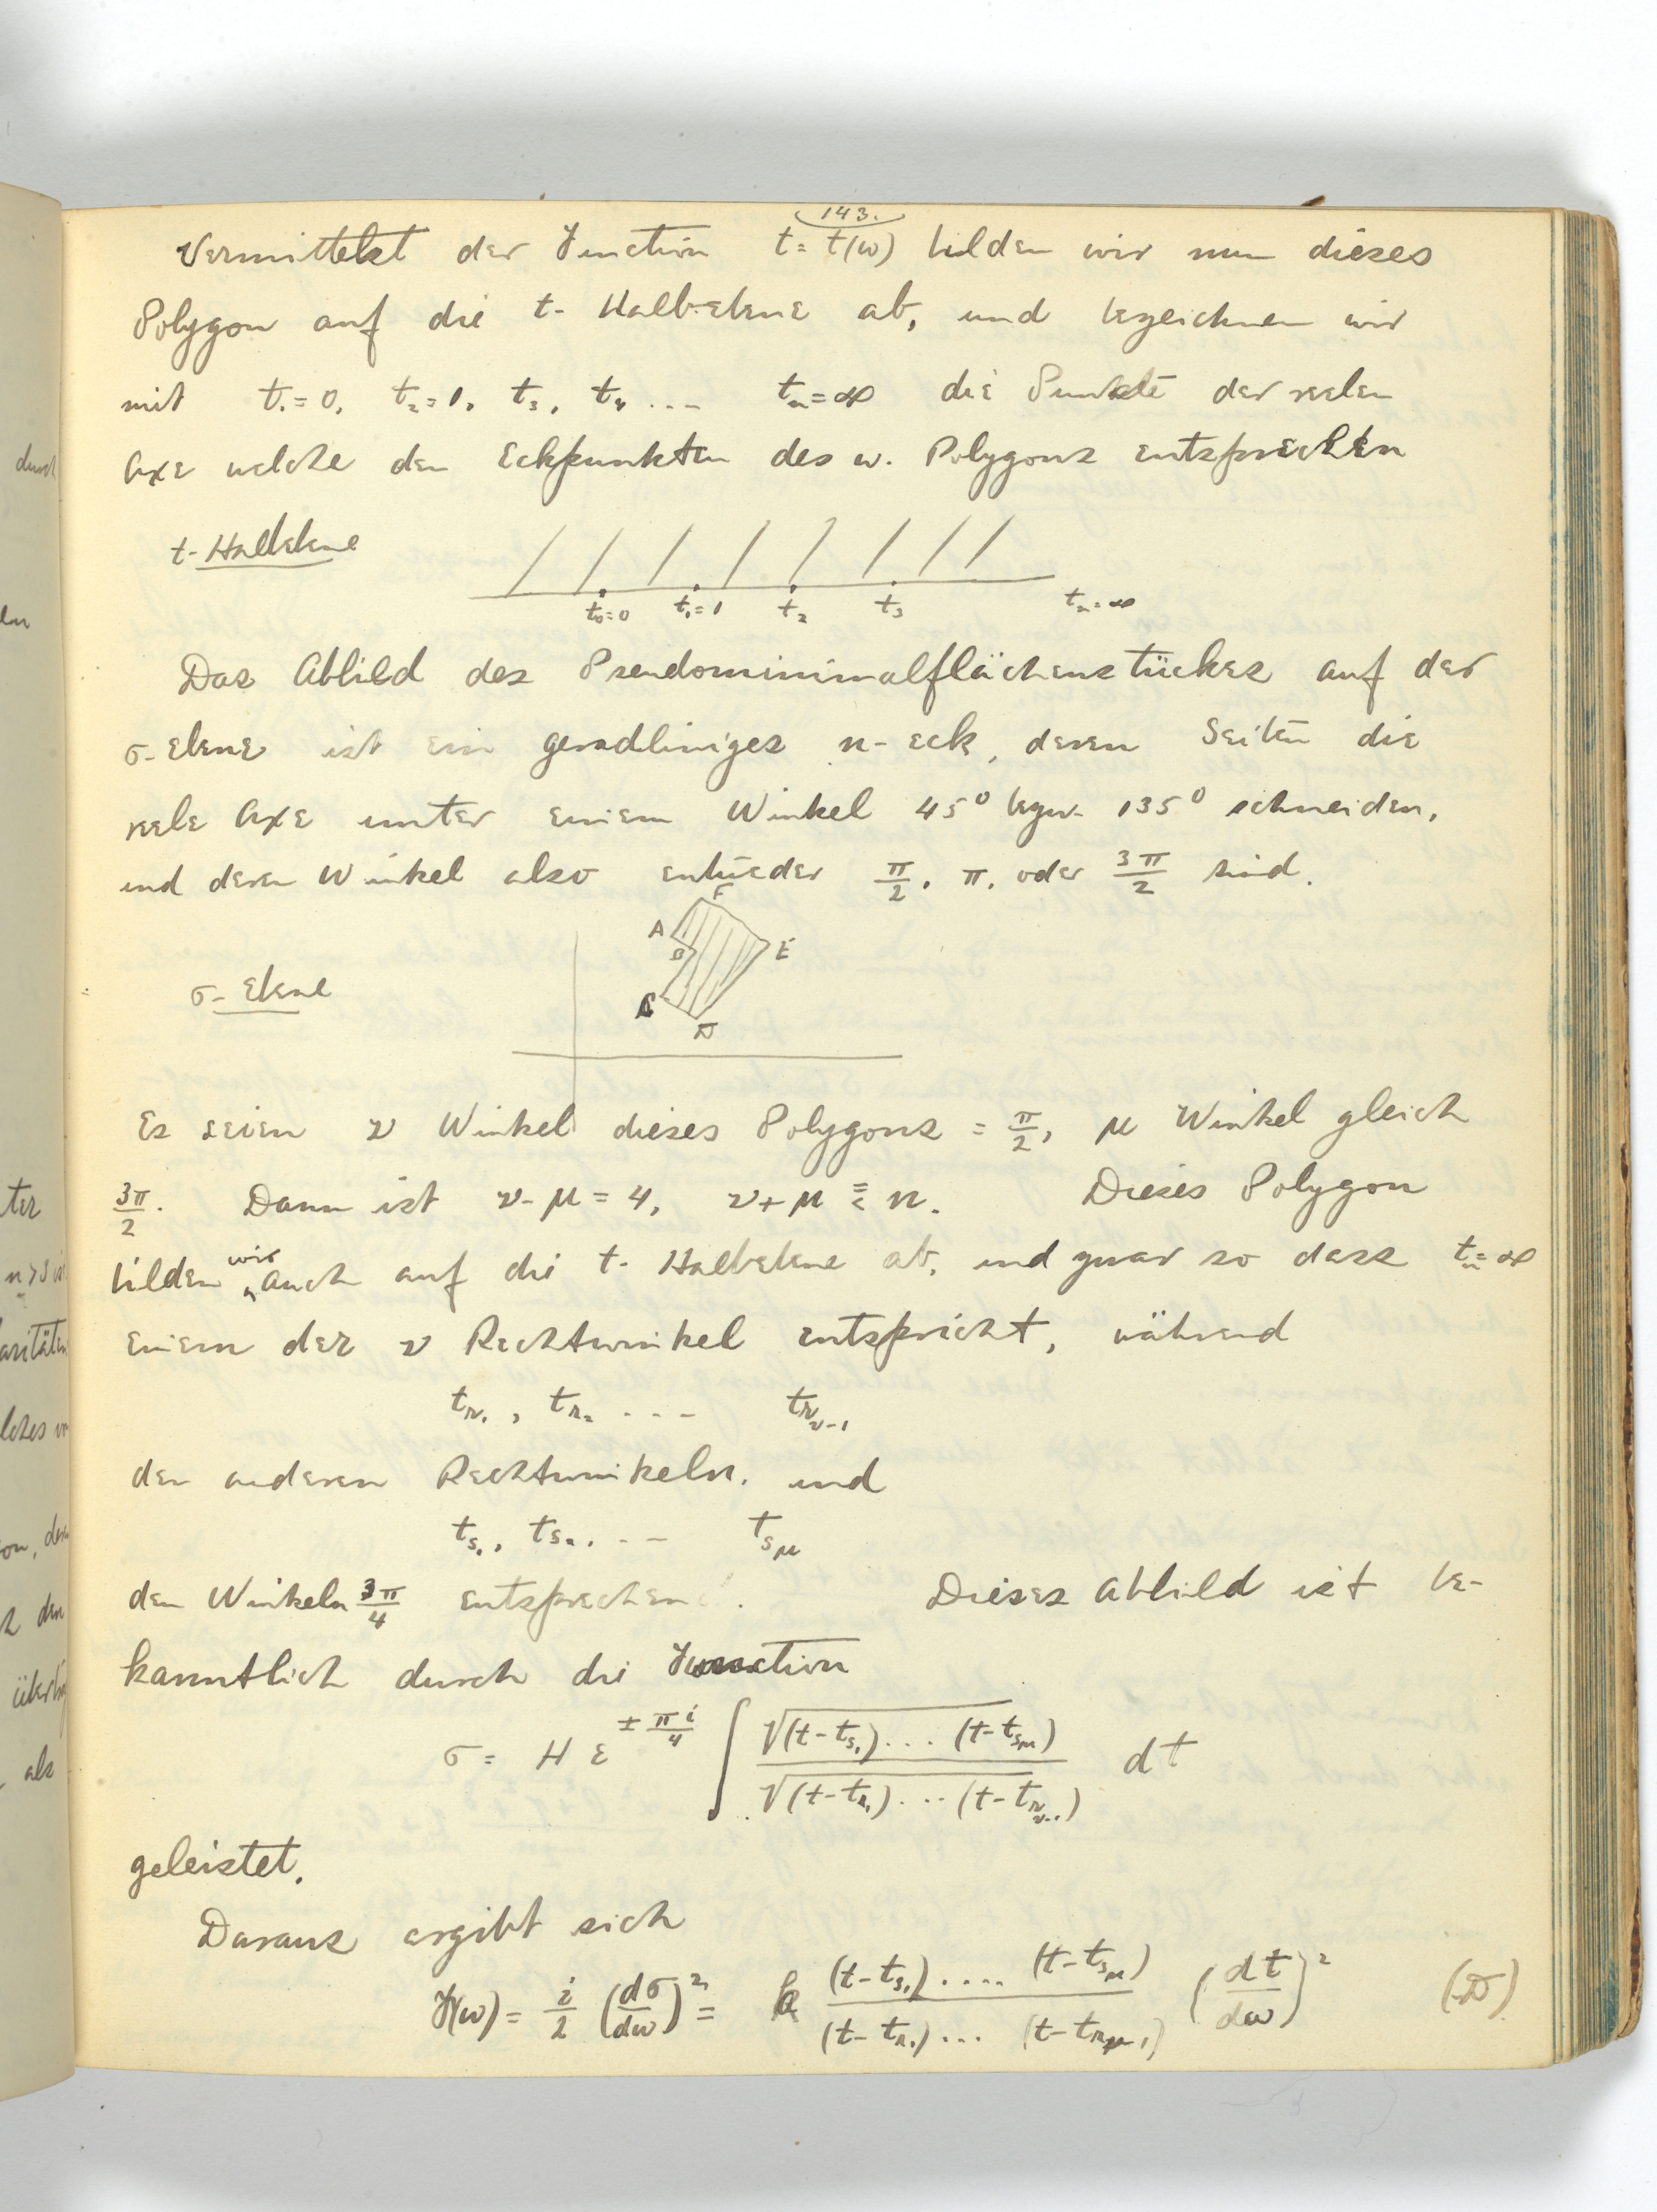 143.
Vermittelst der Function t = t(w) bilden wir nun dieses
Polygon auf die t-Halbebene ab, und bezeichnen wir
mit t₁=0, t₂=1, t₃, t₄ ... tₙ=∞ die Punkte der reelen
Axe welche den Eckpunkten des w. Polygons entsprechen
t-Halbebene
t₀=0 t₁=1 t₂ t₃ tₙ=∞
Das Abbild des Pseudominimalflächenstückes auf der
σ-Ebene ist ein geradliniges n-eck, deren Seiten die
reele Axe unter einem Winkel 45° bezw. 135° schneiden,
und deren Winkel also entweder π/2, π, oder 3π/2 sind.
σ-Ebene
F
A
B
E
C
D
Es seien ν Winkel dieses Polygons = π/2, μ Winkel gleich
3π/2. Dann ist ν-μ=4, ν+μ ≦ n. Dieses Polygon
bilden wir auch auf die t-Halbebene ab, und zwar so dass tₙ=∞
einem der ν Rechtwinkel entspricht, während
t_{r₁}, t_{r₂} ... t_{r_{ν-1}}
den anderen Rechtwinkeln, und
t_{s₁}, t_{s₂}, ... t_{s_μ}
den Winkeln 3π/4 entsprechen. Dieses Abbild ist be-
kanntlich durch die Function
σ = H e^{± πi/4} ∫ √(t-t_{s₁})...(t-t_{s_μ}) / √(t-t_{r₁})...(t-t_{r_{ν-1}}) dt
geleistet.
Daraus ergibt sich
F(w) = i/2 (dσ/dw)² = k (t-t_{s₁})....(t-t_{s_μ}) / (t-t_{r₁})...(t-t_{r_{μ-1}}) (dt/dw)² (D)